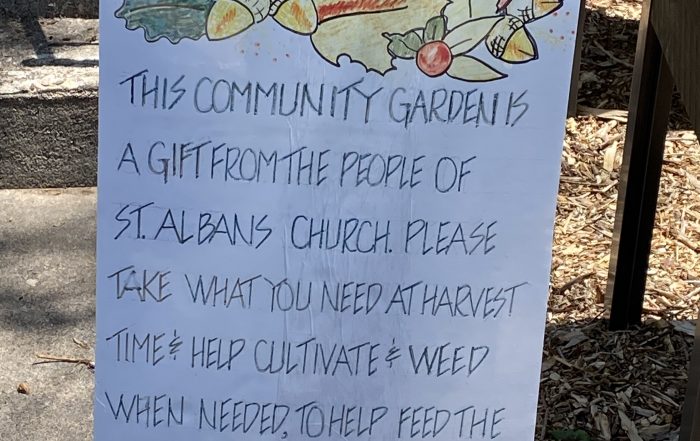 THIS COMMUNITY GARDEN IS
A GIFT FROM THE PEOPLE OF
ST. ALBANS CHURCH. PLEASE
TAKE WHAT YOU NEED AT HARVEST
TIME & HELP CULTIVATE & WEED
WHEN NEEDED, TO HELP FEED THE